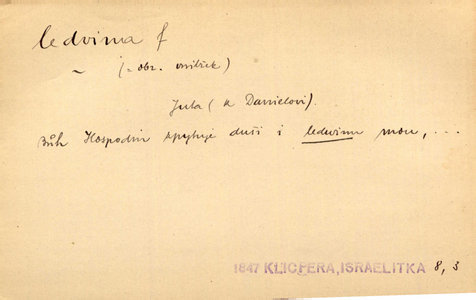 ledvina f
~ (= obr. vnitřek)
Juta (k Danielovi).
Bůh Hospodin zpytuje duši i ledvinu mou, ...
1847 KLICPERA, ISRAELITKA 8, 3